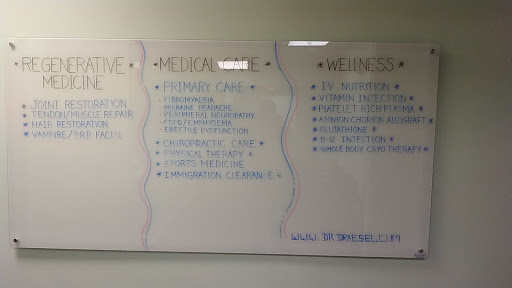 * REGENERATIVE *
MEDICINE
* JOINT RESTORATION
* TENDON/MUSCLE REPAIR
* HAIR RESTORATION
* VAMPIRE/PRP FACIAL
* MEDICAL CARE *
* PRIMARY CARE *
- FIBROMYALGIA
- MIGRAINE HEADACHE
- PERIPHERAL NEUROPATHY
- EMPHYSEMA
- ERECTILE DYSFUNCTION
* CHIROPRACTIC CARE *
* PHYSICAL THERAPY *
* SPORTS MEDICINE *
* IMMIGRATION CLEARAN E *
* WELLNESS *
* I.V NUTRITION *
* VITAMIN INJECTION *
* PLATELET RICH PLASMA *
* AMNION CHORION ALLOGRAFT *
* GLUTATHIONE *
* B-12 INJECTION *
* WHOLE BODY CRYO THERAPY *